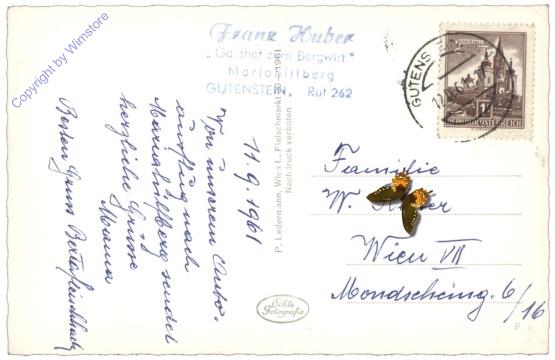 Copyright by Wimstore
Franz Huber
„Gasthof zum Bergwirt"
Mariahilfberg
GUTENSTEIN, Ruf 262
GUTENS
REPUBLIK ÖSTERREICH
11.9.1961
Von unserem Auto-
ausflug nach
Mariahilfberg sendet
herzliche Grüsse
Mama
Besten Gruss
P. Ledermann, Wien I., Fleischmarkt 20 - 1961
Nachdruck verboten
Echte
Fotografie
Familie
W.
Wien VII
Mondscheing. 6/16
F